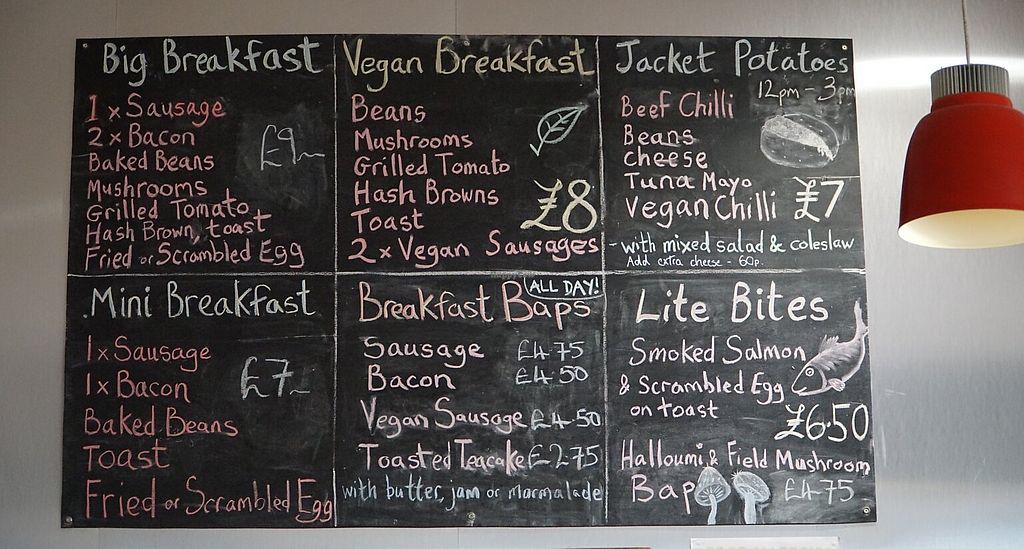 Big Breakfast
1 x Sausage
2 x Bacon
Baked Beans
Mushrooms
Grilled Tomato
Hash Brown, toast
Fried or Scrambled Egg
£9
Vegan Breakfast
Beans
Mushrooms
Grilled Tomato
Hash Browns
Toast
2 x Vegan Sausages
£8
Jacket Potatoes
12pm - 3pm
Beef Chilli
Beans
Cheese
Tuna Mayo
Vegan Chilli £7
- with mixed salad & coleslaw
Add extra cheese - 60p.
Mini Breakfast
1 x Sausage
1 x Bacon
Baked Beans
Toast
Fried or Scrambled Egg
£7
ALL DAY!
Breakfast Baps
Sausage £4.75
Bacon £4.50
Vegan Sausage £4.50
Toasted Teacake £2.75
with butter, jam or marmalade
Lite Bites
Smoked Salmon
& Scrambled Egg
on toast
£6.50
Halloumi & Field Mushroom
Bap £4.75